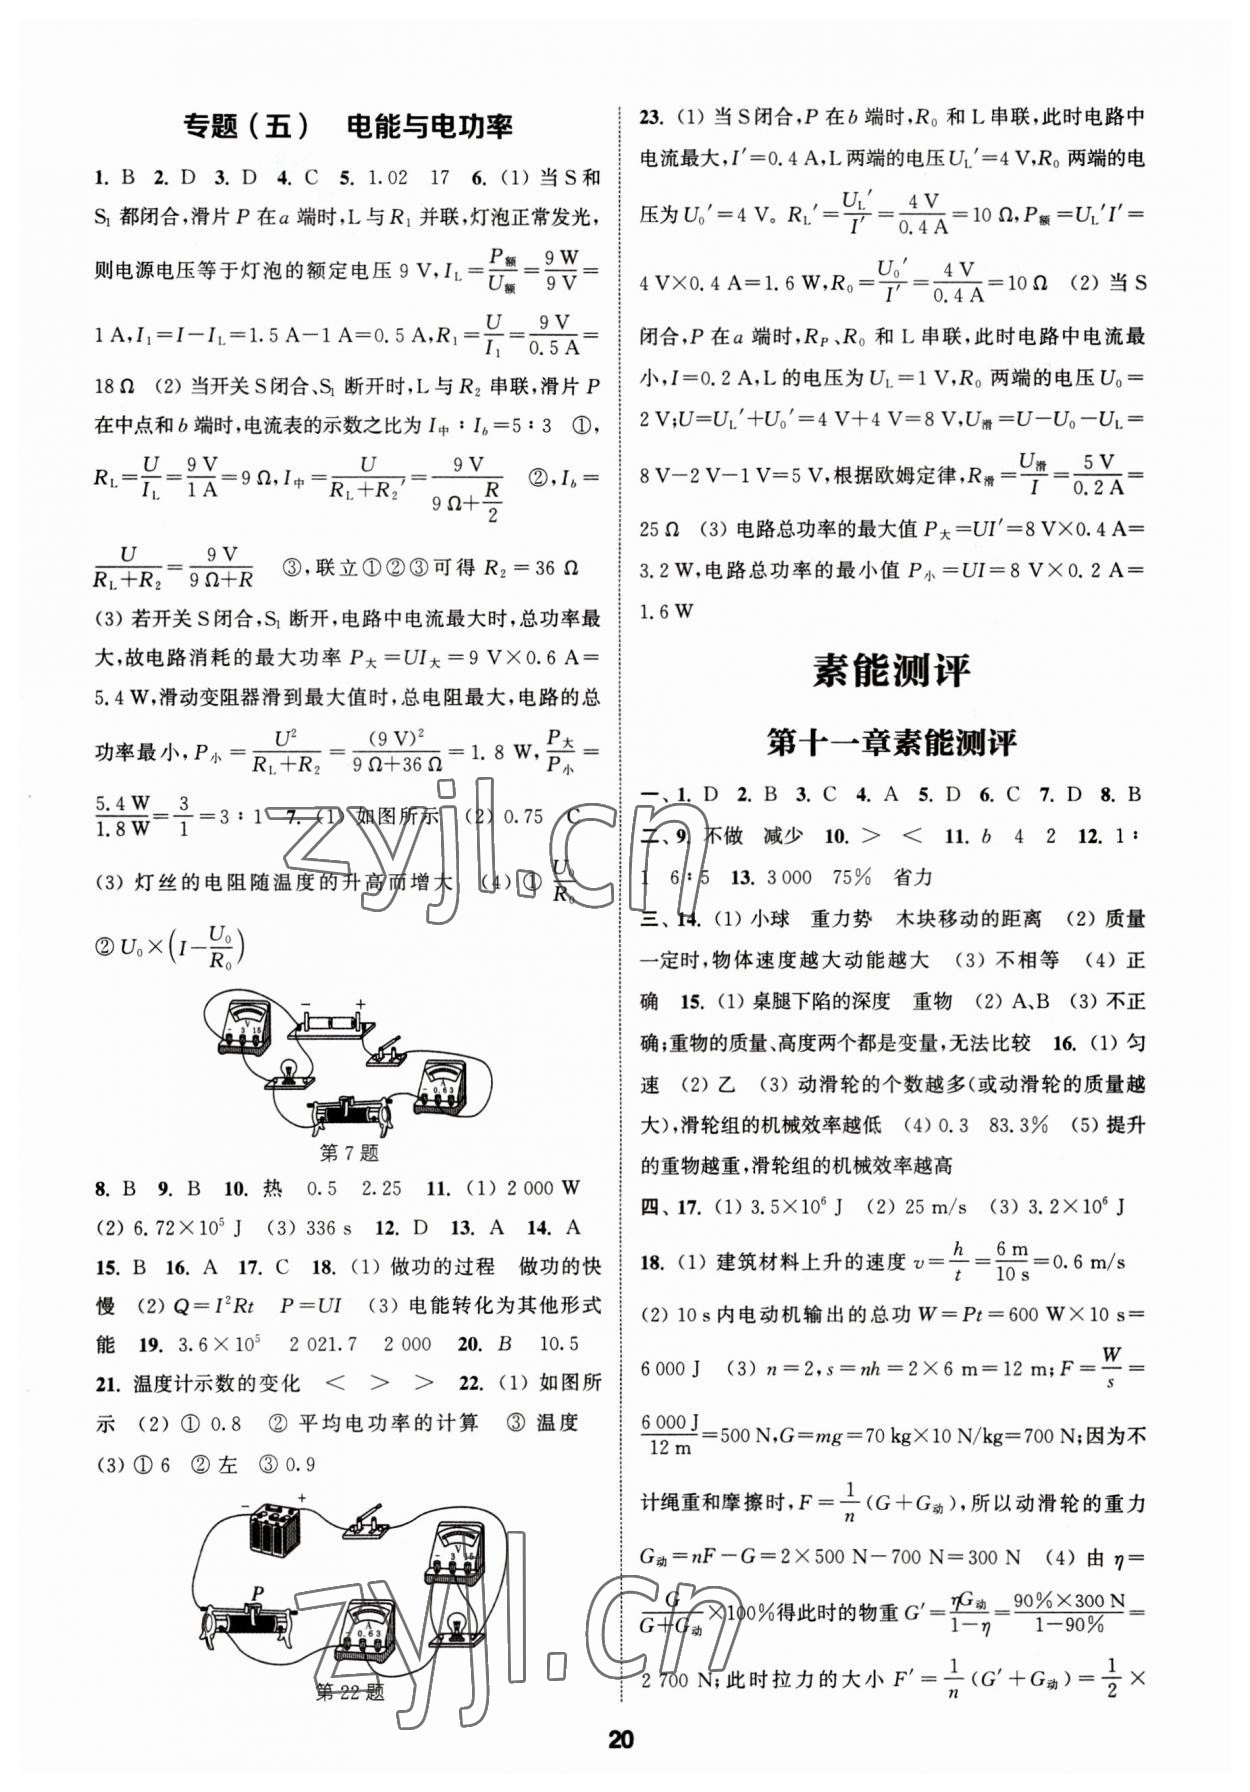 专题(五)　电能与电功率
1. B 2. D 3. D 4. C 5. 1.02 17 6. (1) 当 S 和
S₁ 都闭合,滑片 P 在 a 端时,L 与 R₁ 并联,灯泡正常发光,
则电源电压等于灯泡的额定电压 9 V,I_L=P额/U额=9 W/9 V=
1 A,I₁=I-I_L=1.5 A-1 A=0.5 A,R₁=U/I₁=9 V/0.5 A=
18 Ω (2) 当开关 S 闭合、S₁ 断开时,L 与 R₂ 串联,滑片 P
在中点和 b 端时,电流表的示数之比为 I中∶I_b=5∶3 ①,
R_L=U/I_L=9 V/1 A=9 Ω,I中=U/(R_L+R₂′)=9 V/(9 Ω+R/2) ②,I_b=
U/(R_L+R₂)=9 V/(9 Ω+R) ③,联立①②③可得 R₂=36 Ω
(3) 若开关 S 闭合,S₁ 断开,电路中电流最大时,总功率最
大,故电路消耗的最大功率 P大=UI大=9 V×0.6 A=
5.4 W,滑动变阻器滑到最大值时,总电阻最大,电路的总
功率最小,P小=U²/(R_L+R₂)=(9 V)²/(9 Ω+36 Ω)=1.8 W,P大/P小=
5.4 W/1.8 W=3/1=3∶1 7. (1) 如图所示 (2) 0.75 C
(3) 灯丝的电阻随温度的升高而增大 (4) ① U₀/R₀
② U₀×(I-U₀/R₀)
- + - 3 15 V A - 0.6 3
第 7 题
8. B 9. B 10. 热 0.5 2.25 11. (1) 2 000 W
(2) 6.72×10⁵ J (3) 336 s 12. D 13. A 14. A
15. B 16. A 17. C 18. (1) 做功的过程 做功的快
慢 (2) Q=I²Rt P=UI (3) 电能转化为其他形式
能 19. 3.6×10⁵ 2 021.7 2 000 20. B 10.5
21. 温度计示数的变化 < > > 22. (1) 如图所
示 (2) ① 0.8 ② 平均电功率的计算 ③ 温度
(3) ① 6 ② 左 ③ 0.9
- + V - 3 15 P A - 0.6 3
第 22 题
23. (1) 当 S 闭合,P 在 b 端时,R₀ 和 L 串联,此时电路中
电流最大,I′=0.4 A,L 两端的电压 U_L′=4 V,R₀ 两端的电
压为 U₀′=4 V。R_L′=U_L′/I′=4 V/0.4 A=10 Ω,P额=U_L′I′=
4 V×0.4 A=1.6 W,R₀=U₀′/I′=4 V/0.4 A=10 Ω (2) 当 S
闭合,P 在 a 端时,R_P、R₀ 和 L 串联,此时电路中电流最
小,I=0.2 A,L 的电压为 U_L=1 V,R₀ 两端的电压 U₀=
2 V;U=U_L′+U₀′=4 V+4 V=8 V,U滑=U-U₀-U_L=
8 V-2 V-1 V=5 V,根据欧姆定律,R滑=U滑/I=5 V/0.2 A=
25 Ω (3) 电路总功率的最大值 P大=UI′=8 V×0.4 A=
3.2 W,电路总功率的最小值 P小=UI=8 V×0.2 A=
1.6 W
素能测评
第十一章素能测评
一、1. D 2. B 3. C 4. A 5. D 6. C 7. D 8. B
二、9. 不做 减少 10. > < 11. b 4 2 12. 1∶
1 6∶5 13. 3 000 75% 省力
三、14. (1) 小球 重力势 木块移动的距离 (2) 质量
一定时,物体速度越大动能越大 (3) 不相等 (4) 正
确 15. (1) 桌腿下陷的深度 重物 (2) A、B (3) 不正
确;重物的质量、高度两个都是变量,无法比较 16. (1) 匀
速 (2) 乙 (3) 动滑轮的个数越多(或动滑轮的质量越
大),滑轮组的机械效率越低 (4) 0.3 83.3% (5) 提升
的重物越重,滑轮组的机械效率越高
四、17. (1) 3.5×10⁶ J (2) 25 m/s (3) 3.2×10⁶ J
18. (1) 建筑材料上升的速度 v=h/t=6 m/10 s=0.6 m/s
(2) 10 s 内电动机输出的总功 W=Pt=600 W×10 s=
6 000 J (3) n=2,s=nh=2×6 m=12 m;F=W/s=
6 000 J/12 m=500 N,G=mg=70 kg×10 N/kg=700 N;因为不
计绳重和摩擦时,F=1/n(G+G动),所以动滑轮的重力
G动=nF-G=2×500 N-700 N=300 N (4) 由 η=
G/(G+G动)×100%得此时的物重 G′=ηG动/(1-η)=90%×300 N/(1-90%)=
2 700 N;此时拉力的大小 F′=1/n(G′+G动)=1/2×
20
zyjl.cn
zyjl.cn